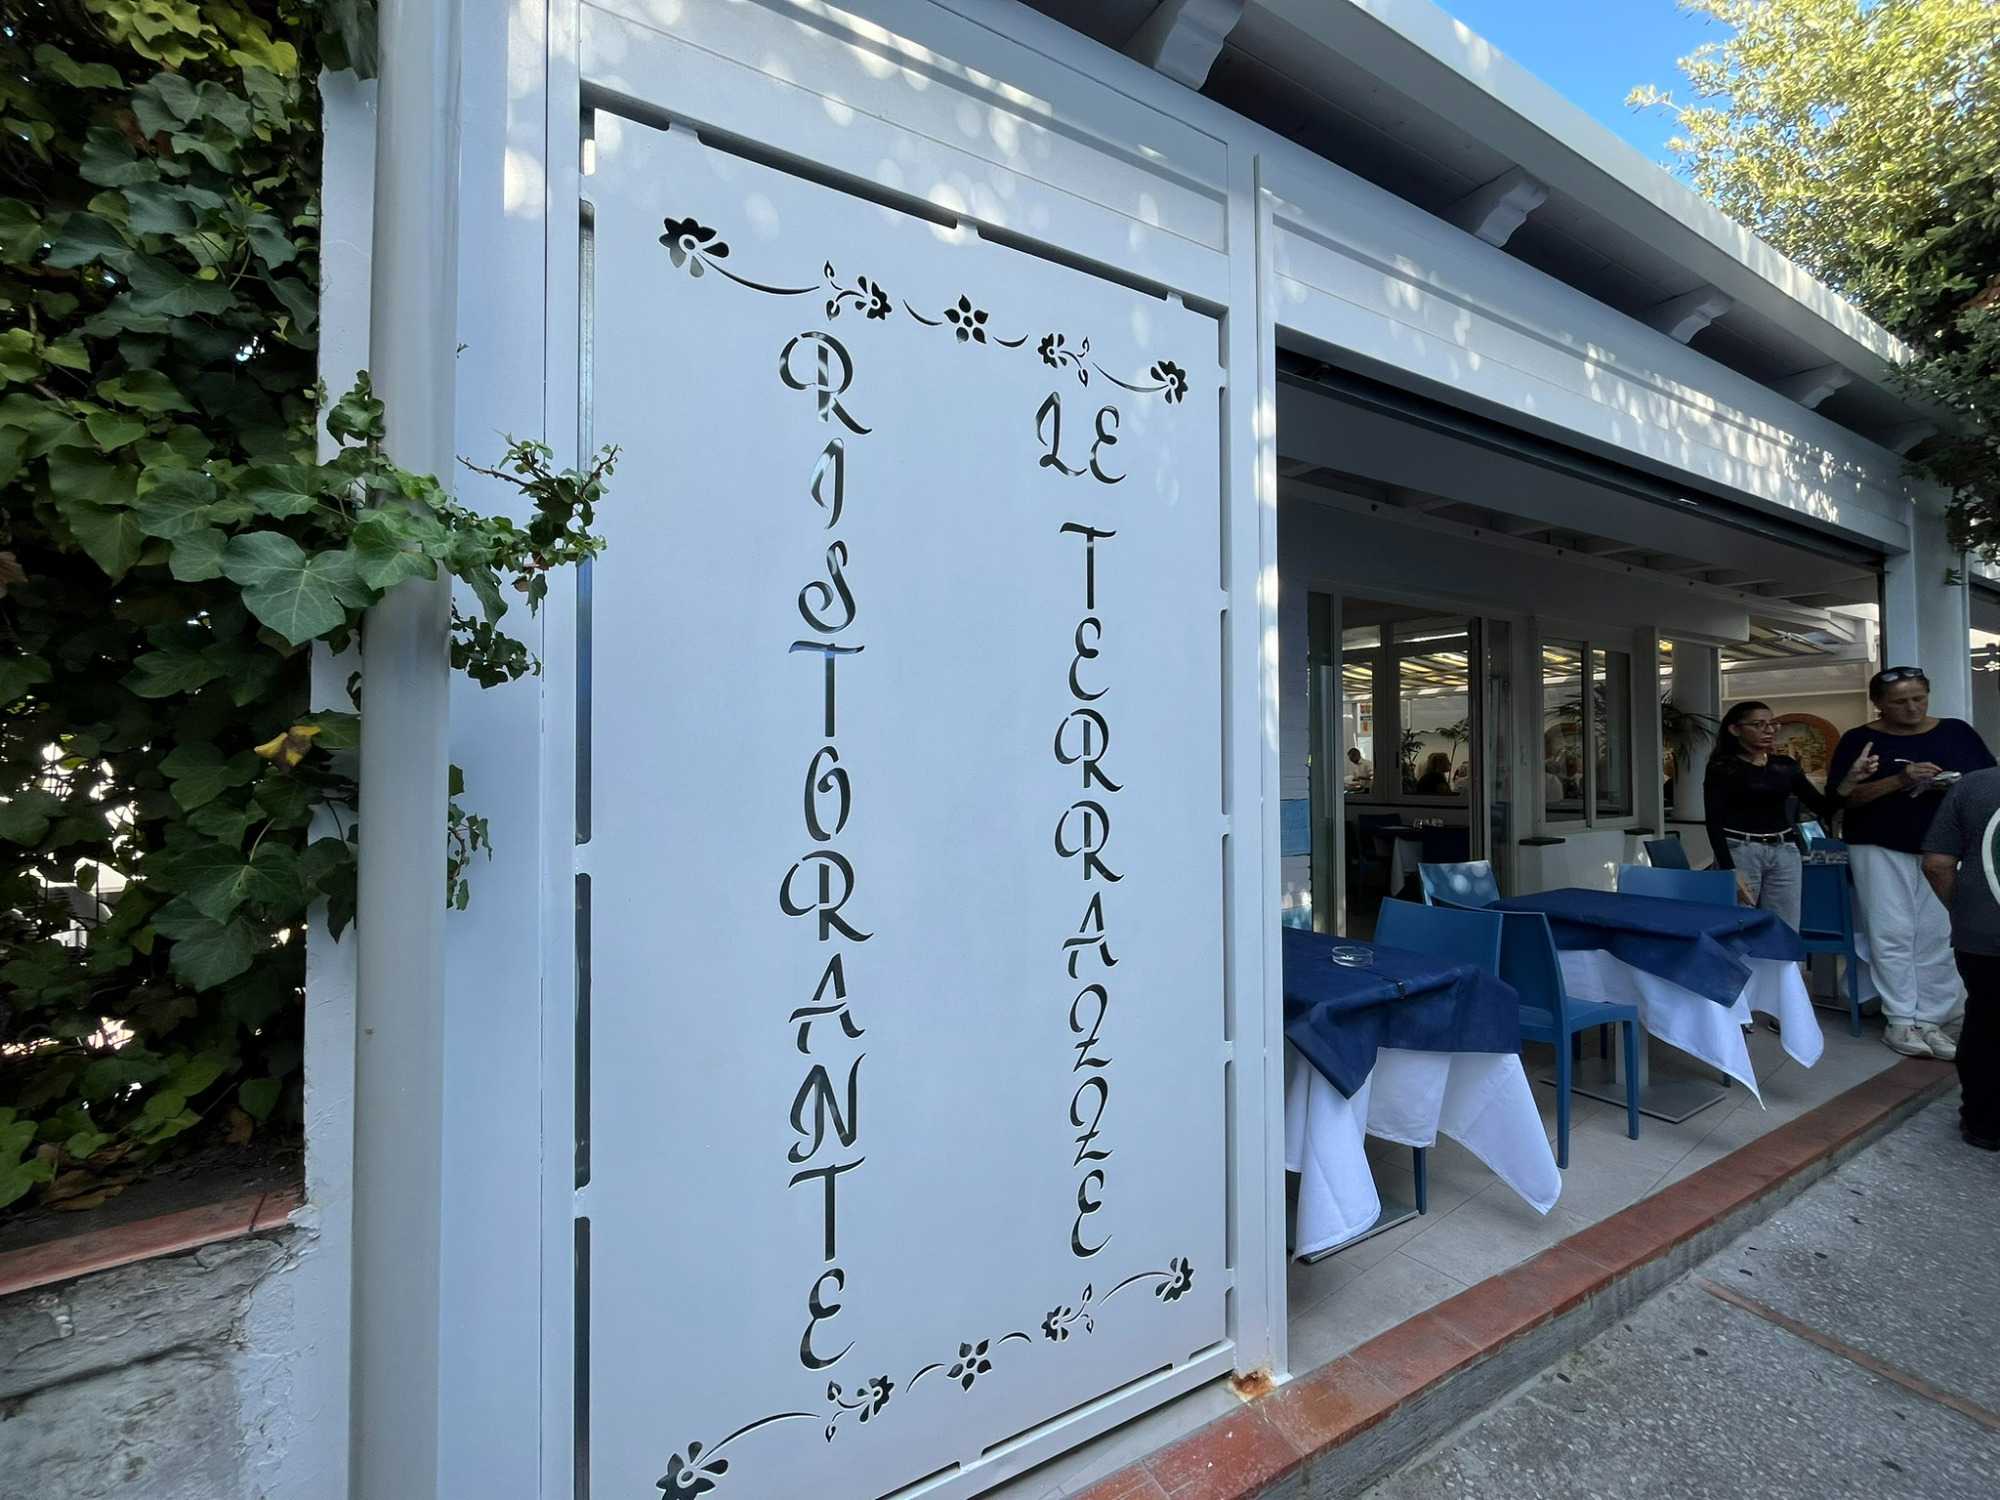 RISTORANTE
LE TERRAZZE